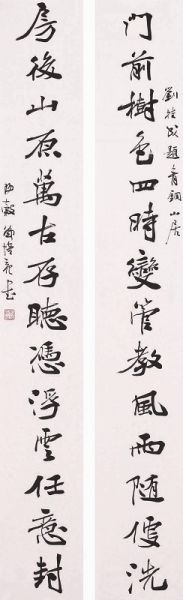 門前樹色四時變管教風雨随便洗
劉題青銅山居
房後山原萬古存聽憑浮雲任意封